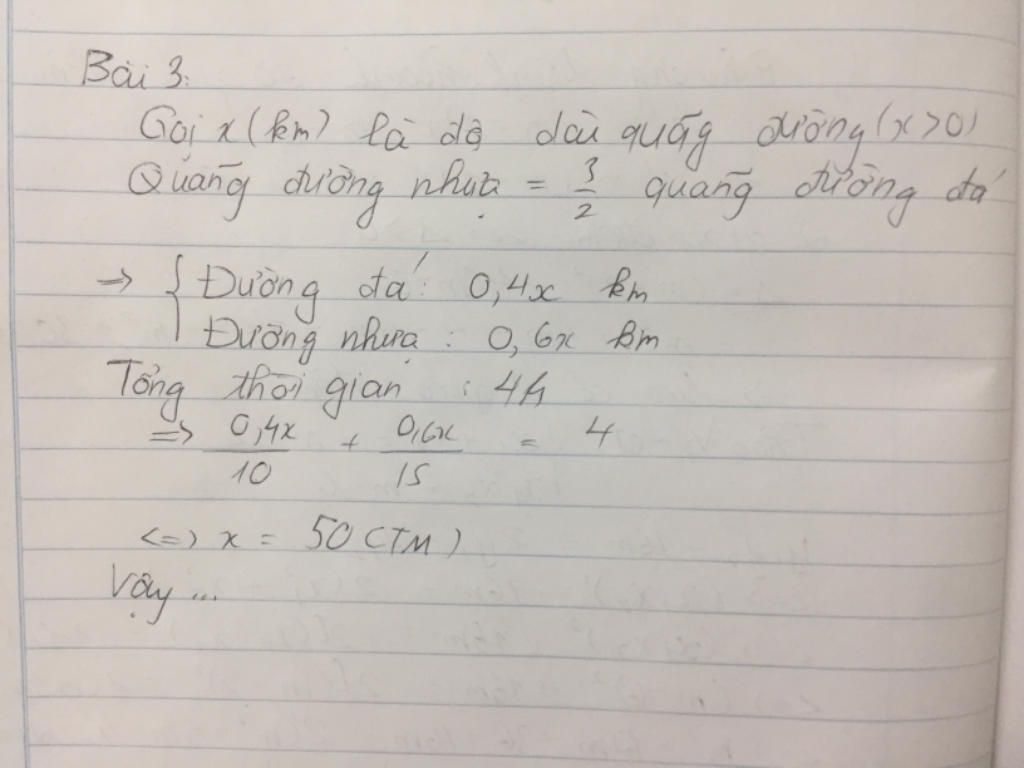 Bài 3:
Gọi x (km) là độ dài quãng đường (x > 0)
Quãng đường nhựa = 3/2 quãng đường đá
=> { Đường đá : 0,4x km
Đường nhựa : 0,6x km
Tổng thời gian : 4h
=> 0,4x/10 + 0,6x/15 = 4
<=> x = 50 (TM)
Vậy ...